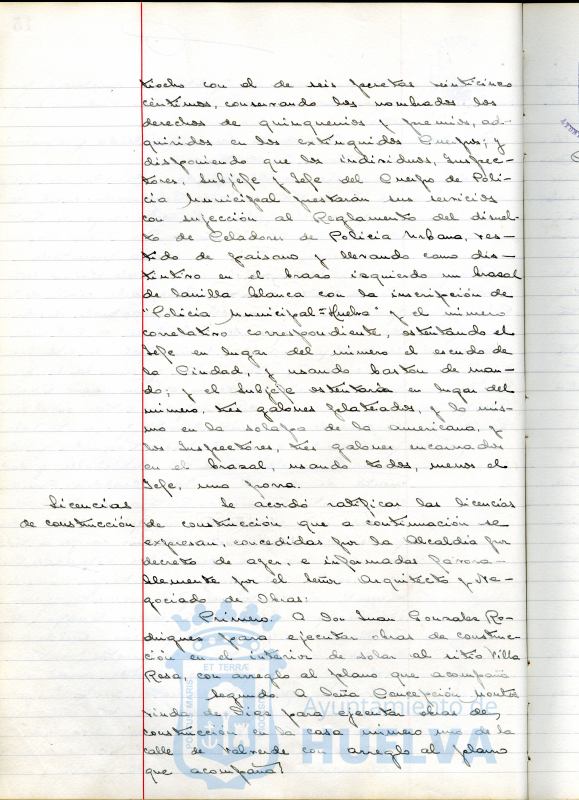 tiocho con el de seis pesetas veinticinco
céntimos, conservando los nombrados los
derechos de quinquenios y premios, ad-
quiridos en los extinguidos Cuerpos; y
disponiendo que los individuos, Inspec-
tores, Subjefe y Jefe del Cuerpo de Poli-
cía Municipal prestarán sus servicios
con sujección al Reglamento del disuel-
to de Celadores de Policía Urbana, ves-
tido de paisano y llevando como dis-
tintivo en el brazo izquierdo un brasal
de lanilla blanca con la inscripción de
"Policía Municipal=Huelva" y el número
correlativo correspondiente, ostentando el
Jefe en lugar del número el escudo de
la Ciudad, y usando baston de man-
do; y el Subjefe ostentaria en lugar del
número, tres galones plateados, y lo mis-
mo en la solapa de la americana, y
los Inspectores, tres galones encarnados
en el brazal, usando todos, menos el
Jefe, una porra.
Licencias
de construcción
Se acordó ratificar las licencias
de construcción que a continuación se
expresan, concedidas por la Alcaldía por
decreto de ayer, e informadas favora-
blemente por el Señor Arquitecto y Ne-
gociado de Obras:
Primero. A Don Juan Gonzalez Ro-
driguez para ejecutar obras de construc-
ción en el interior de solar al sitio Villa
Rosa, con arreglo al plano que acompaña
Segundo. A Doña Concepción
viuda de Dias para ejecutar obras de
construcción en la casa número uno de la
calle de con arreglo al plano
que acompaña.
Ayuntamiento de
HUELVA
ET TERRÆ
MARIS